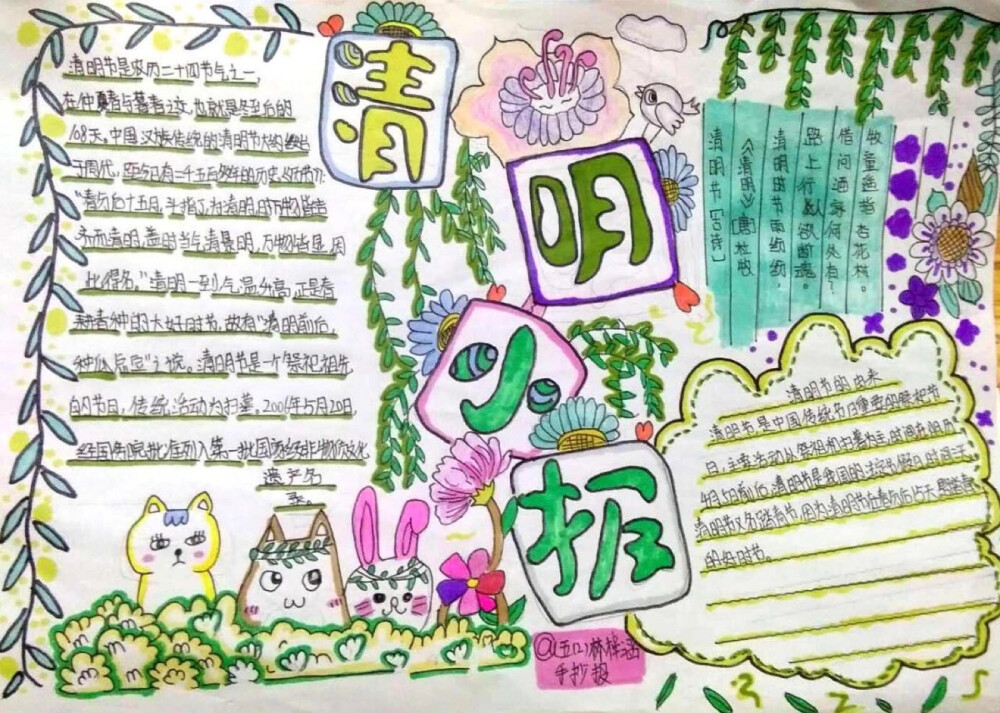 清明节是农历二十四节气之一,
在仲春与暮春之交,也就是冬至后的
108天。中国汉族传统的清明节大约始
于周代,距今已有二千五百多年的历史,
"春分后十五日,斗指丁,为清明,时万物皆
齐而清明,盖时当气清景明,万物皆显,因
此得名。"清明一到,气温升高,正是春
耕春种的大好时节,故有"清明前后,
种瓜点豆"之说。清明节是一个祭祀祖先
的节日,传统活动为扫墓。2006年5月20日,
经国务院批准列入第一批国家级非物质文化
遗产名
录。
清
明
小
报
清明节[古诗]
《清明》[唐]杜牧
清明时节雨纷纷,
路上行人欲断魂。
借问酒家何处有?
牧童遥指杏花村。
清明节的由来
清明节是中国传统节日重要的祭祀节
日,主要活动以祭祖和扫墓为主,时间在阳历
4月5日前后,清明节是我国的法定
清明节又名踏青节,因为清明节在春分后15天
的好时节。
@五(2)林梓涵
手抄报